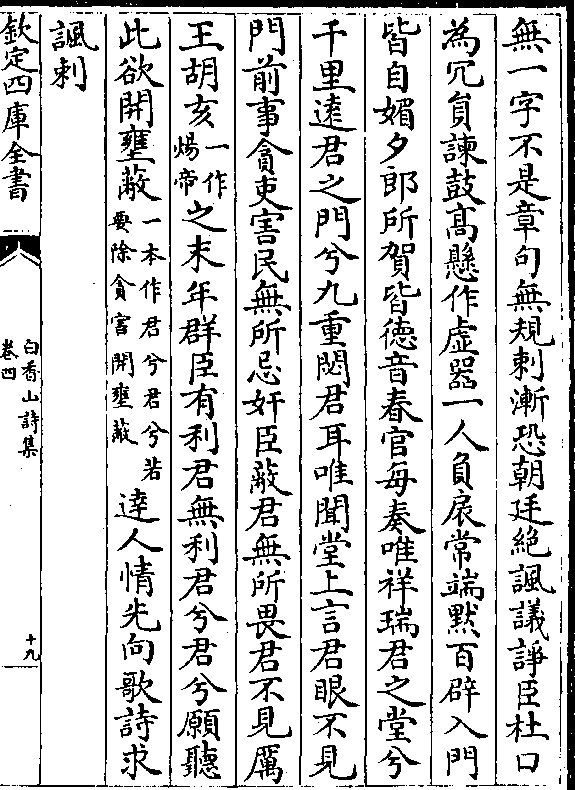 無一字不是章句無規刺漸恐朝廷絶諷議諍臣杜口
為冗貟諫鼓髙懸作虛器一人負扆常端黙百辟入門
皆自媚夕郎所賀皆德音春官毎奏唯祥瑞君之堂兮
千里逺君之門兮九重閟君耳唯聞堂上言君眼不見
門前事貪吏害民無所忌奸臣蔽君無所畏君不見厲
王胡亥一作煬帝之末年群臣有利君無利君兮君兮願聽
此欲開壅蔽一本作君兮君兮若要除貪害開壅蔽達人情先向歌詩求
諷刺
欽定四庫全書
白香山詩集
卷四
十九